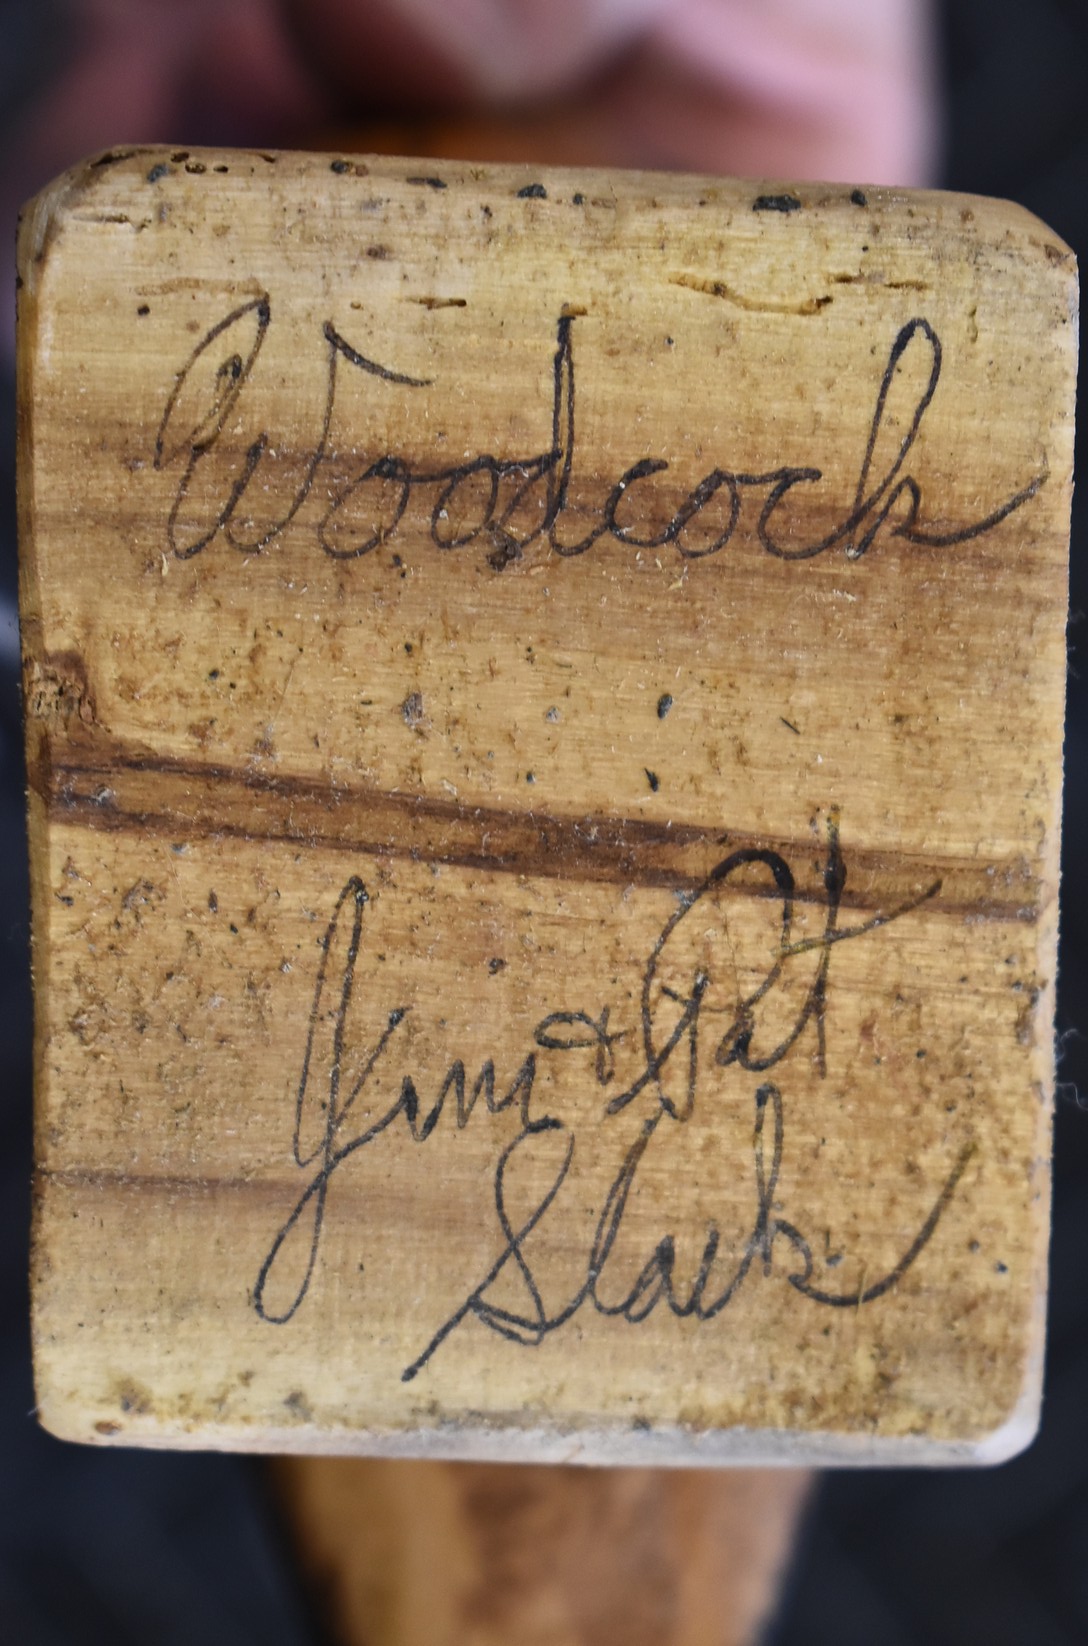 Woodcock
Jim & Pat
Slack